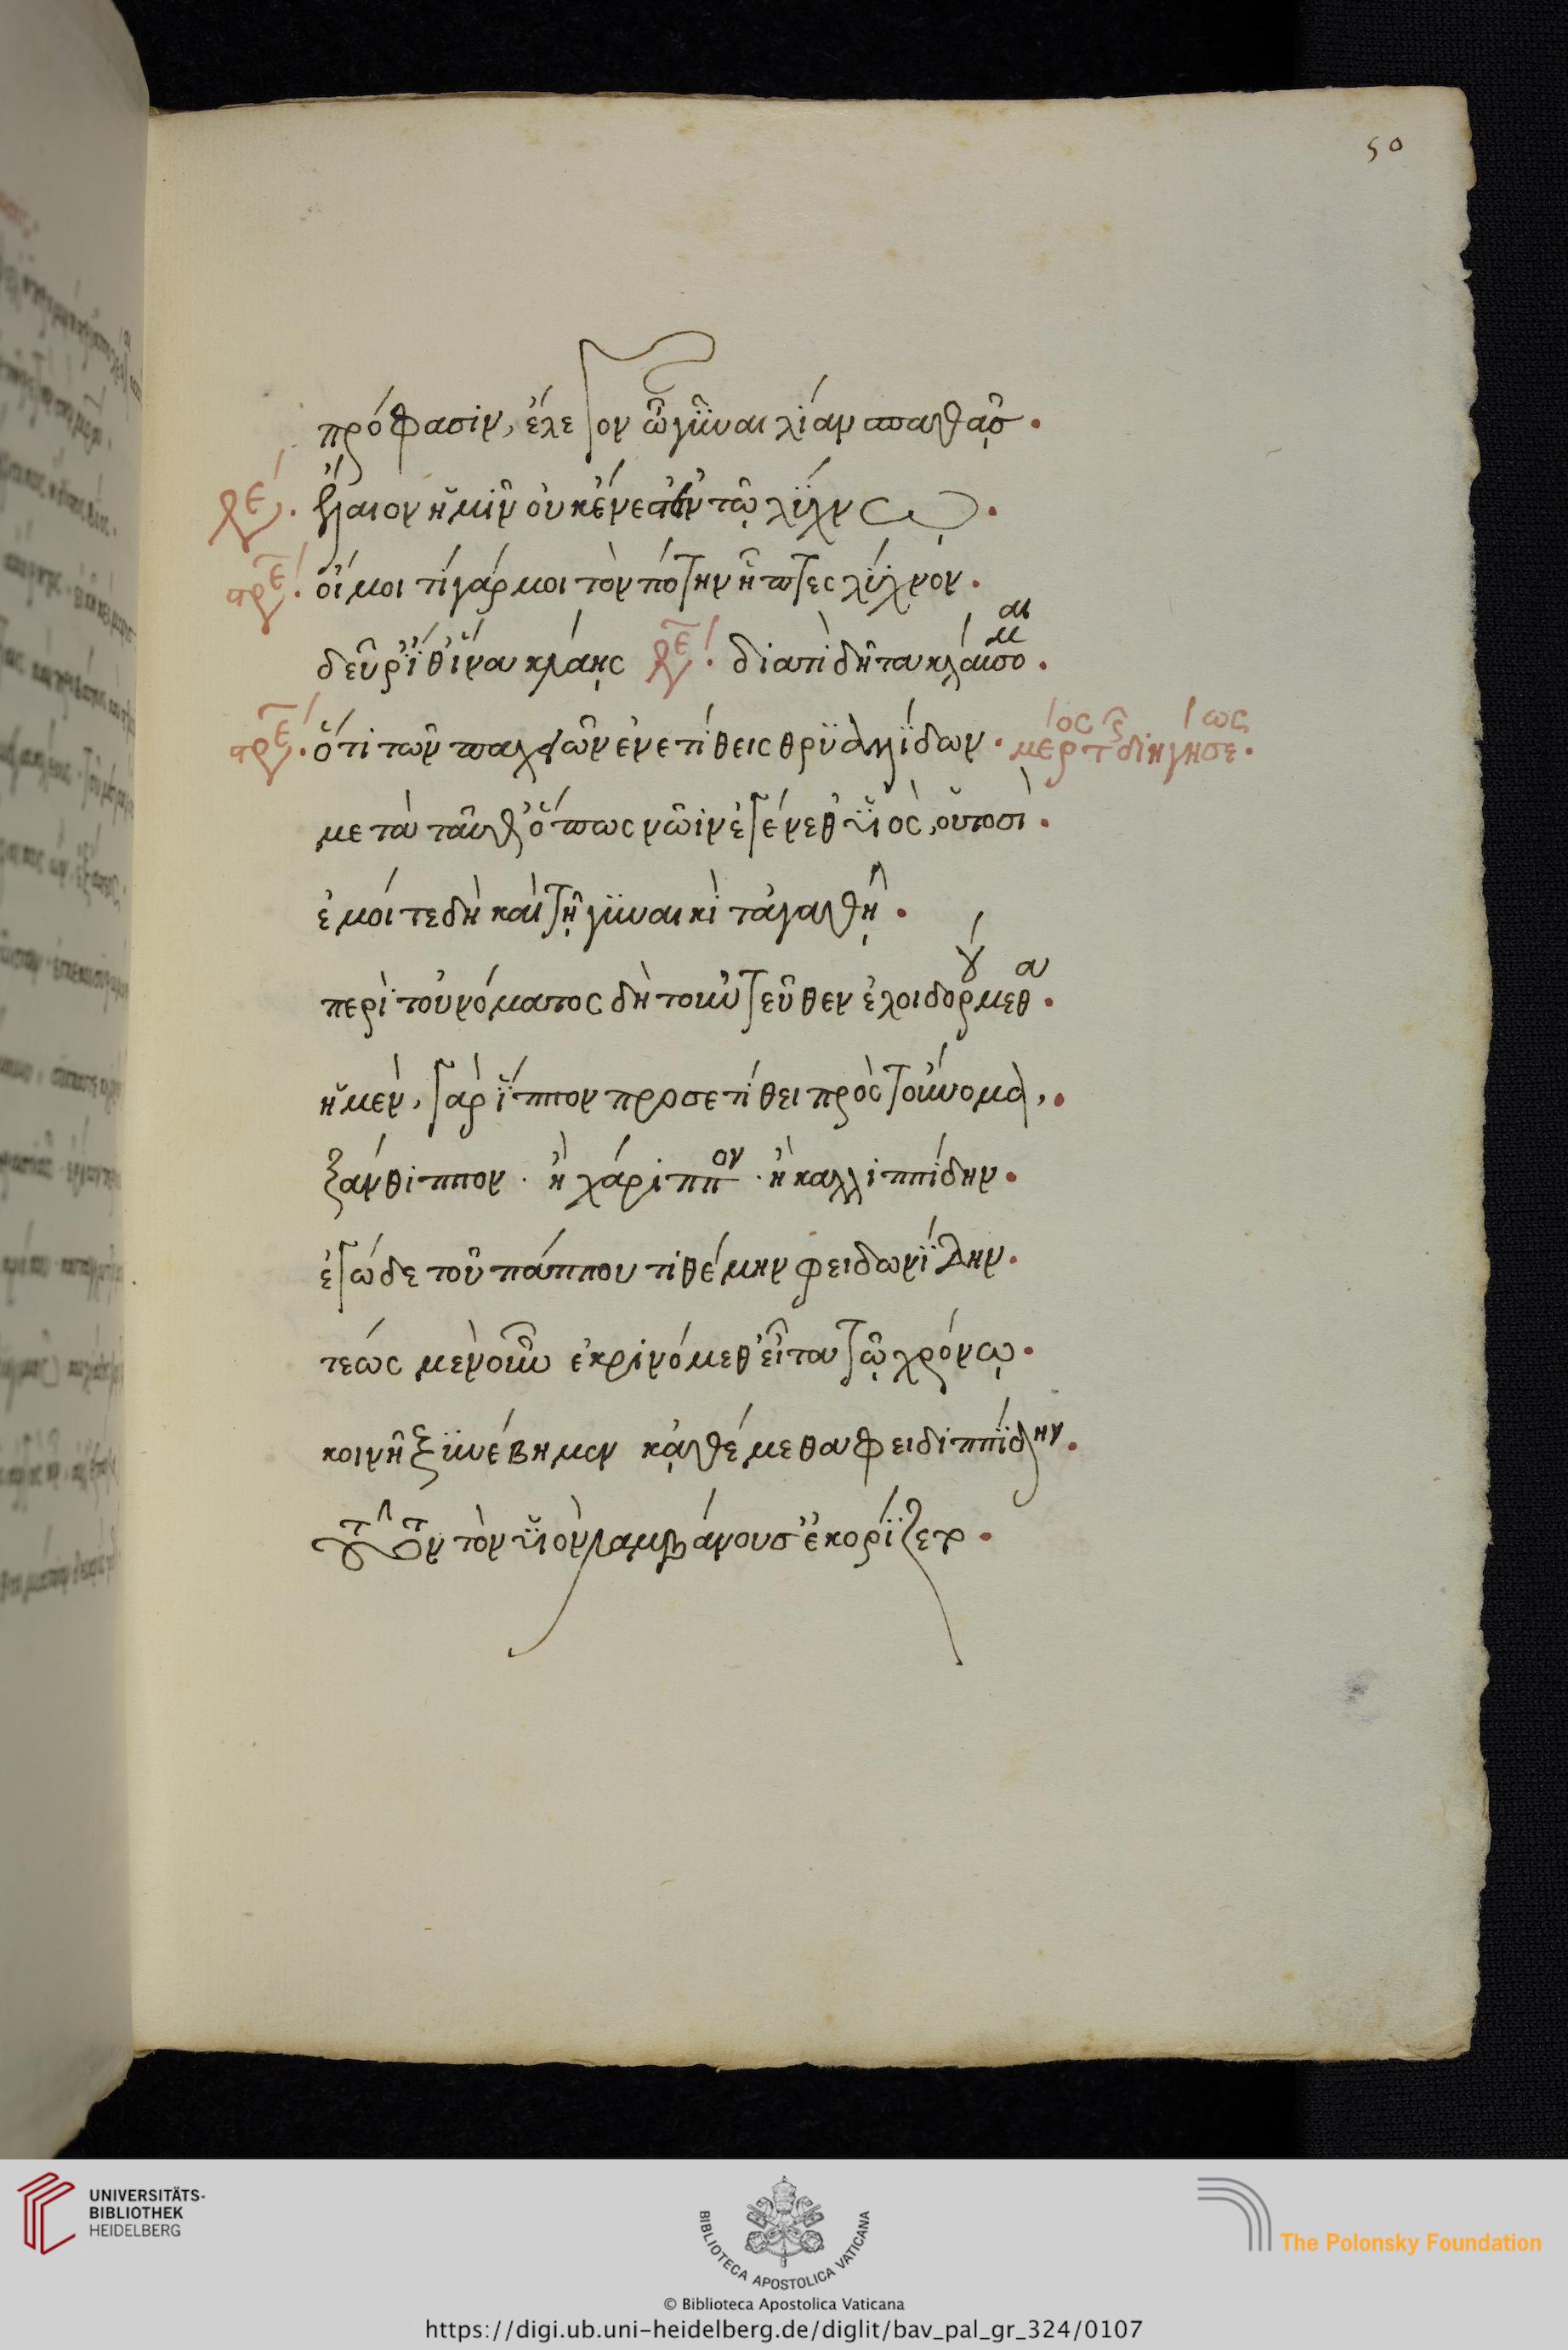 50
πρόφασιν, ἔλεγον ὦ γύναι λίαν σπαθᾷς.
θε. ἔλαιον ἡμῖν οὐκ ἔνεστ' ἐν τῷ λύχνῳ.
στρε. οἴμοι τί γάρ μοι τὸν πότην ἧπτες λύχνον.
δεῦρ' ἴθ' ἵνα κλάῃς θε. διατὶ δῆτα κλαύσομαι.
στρε. ὅτι τῶν παχειῶν ἐνετίθεις θρϋαλλΐδων. μέρος τῆς διηγήσεως.
μετὰ ταῦθ' ὅπως νῶϊν ἐγένεθ' υἱὸς, οὑτοσὶ.
ἐμοί τε δὴ καὶ τῇ γυναικὶ τἀγαθῇ.
περὶ τοὐνόματος δὴ τοὐντεῦθεν ἐλοιδορούμεθα.
ἡ μὲν, γὰρ ἵππον προσετίθει πρὸς τοὔνομα,.
ξάνθιππον. ἢ χάριππον. ἢ καλλιππίδην.
ἐγώ δε τοῦ πάππου τιθέμην φειδωνίδην.
τέως μὲν οὖν ἐκρινόμεθ' εἶτα τῷ χρόνῳ.
κοινῆ ξυνέβημεν κᾀθέμεθα φειδιππίδην.
τοῦτον τὸν υἱὸν λαμβάνουσ' ἐκορίζετο.
UNIVERSITÄTS-
BIBLIOTHEK
HEIDELBERG
BIBLIOTECA APOSTOLICA VATICANA
The Polonsky Foundation
© Biblioteca Apostolica Vaticana
https://digi.ub.uni-heidelberg.de/diglit/bav_pal_gr_324/0107